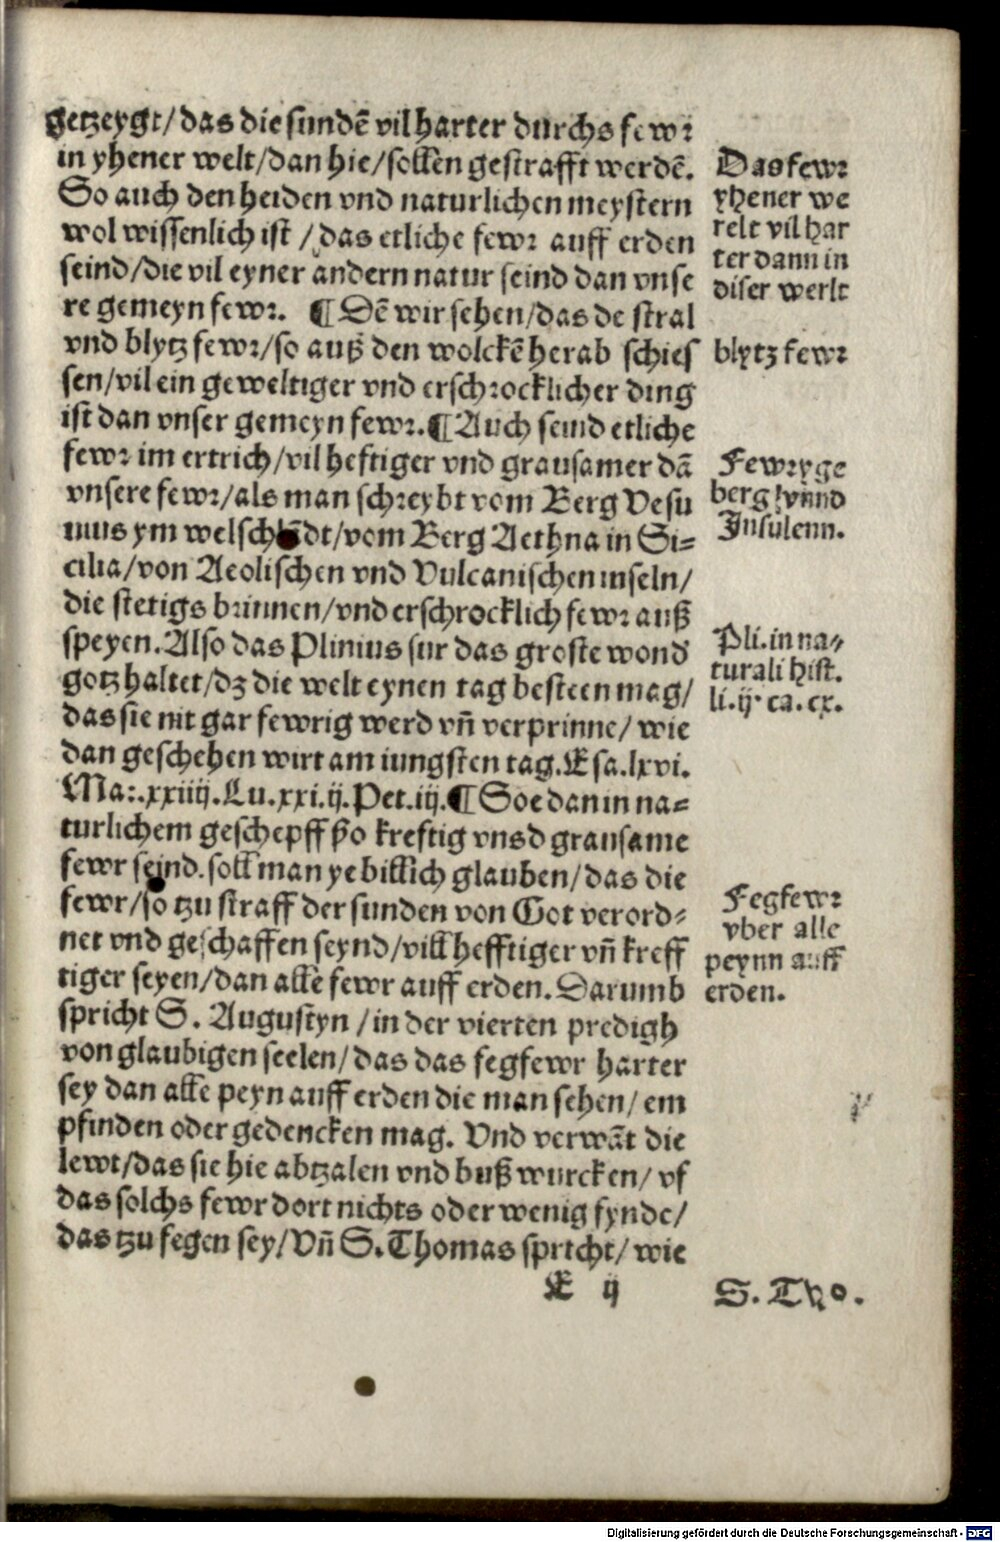 getzeygt/das die sundē vil harter durchs fewr
in yhener welt/dan hie/sollen gestrafft werdē.
So auch den heiden vnd naturlichen meystern
wol wissenlich ist /das etliche fewr auff erden
seind/die vil eyner andern natur seind dan vnse
re gemeyn fewr. ¶ Dē wir sehen/das de stral
vnd blytz fewr/so auß den wolckē herab schies
sen/vil ein geweltiger vnd erschrocklicher ding
ist dan vnser gemeyn fewr.¶ Auch seind etliche
fewr im ertrich/vil heftiger vnd grausamer dā
vnsere fewr/als man schreybt vom Berg Vesu
uius ym welschlādt/vom Berg Aethna in Si=
cilia/von Aeolischen vnd Vulcanischen inseln/
die stetigs brinnen/vnd erschrocklich fewr auß
speyen. Also das Plinius fur das groste wond
gotz haltet/dz die welt eynen tag besteen mag/
das sie nit gar fewrig werd vn̄ verprinne/ wie
dan geschehen wirt am iungsten tag. Esa.lxvi.
Mar.xxiiij.Lu.xxi.ij.Pet.iij.¶ Soe dan in na=
turlichem geschepff ßo kreftig vnsd grausame
fewr seind. soll man ye billich glauben/das die
fewr/so tzu straff der sunden von Got verord=
net vnd geschaffen seynd/vill hefftiger vn̄ kreff
tiger seyen/dan alle fewr auff erden. Darumb
spricht S. Augustyn /in der vierten predigh
von glaubigen seelen/das das fegfewr harter
sey dan alle peyn auff erden die man sehen/ em
pfinden oder gedencken mag. Vnd verwāt die
lewt/das sie hie abtzalen vnd buß wurcken/ vf
das solchs fewr dort nichts oder wenig fynde/
das tzu fegen sey/ Vn̄ S. Thomas spricht/ wie
E ij
Das fewr
yhener we
relt vil har
ter dann in
diser werlt
blytz fewr
Fewryge
berg vnnd
Insulenn.
Pli. in na=
turali hist.
li.ij. ca. cx.
Fegfewr
vber alle
peynn auff
erden.
S. Tho.
Digitalisierung gefördert durch die Deutsche Forschungsgemeinschaft - DFG